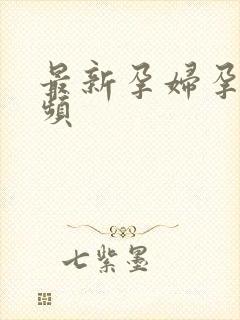 最新孕婦孕
頻
七紫墨